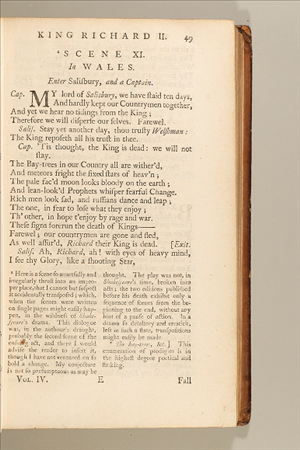 KING RICHARD II. 49
SCENE XI.
In WALES.
Enter Salisbury, and a Captain.
Cap. MY lord of Salisbury, we have staid ten days,
And hardly kept our Countrymen together,
And yet we hear no tidings from the King;
Therefore we will disperse our selves. Farewel.
Salis. Stay yet another day, thou trusty Welshman:
The King reposeth all his trust in thee.
Cap. 'Tis thought, the King is dead: we will not
stay.
The Bay-trees in our Country all are wither'd,
And meteors fright the fixed stars of heav'n;
The pale fac'd moon looks bloody on the earth;
And lean-look'd Prophets whisper fearful Change.
Rich men look sad, and ruffians dance and leap;
The one, in fear to lose what they enjoy;
Th' other, in hope t'enjoy by rage and war.
These signs forerun the death of Kings——
Farewel; our countrymen are gone and fled,
As well assur'd, Richard their King is dead. [Exit.
Salis. Ah, Richard, ah! with eyes of heavy mind,
I see thy Glory, like a shooting Star,
Here is a scene so unartfully and
irregularly thrust into an improper
place, that I cannot but suspect
it accidentally transposed; which,
when the scenes were written
on single pages, might easily happen,
in the wildness of Shakespeare's
drama. This dialogue
was, in the authour's draught,
probably the second scene of the
act, and there I would
advise the reader to insert it,
though I have not ventured on so
bold a change. My conjecture
is not so presumptuous as may be
thought. The play was not, in
Shakespeare's time, broken into
acts; the two editions published
before his death exhibit only a
sequence of scenes from the beginning
to the end, without any
hint of a pause of action. In a
drama so desultory and erratick,
left in such a state, transpositions
might easily be made.
The bay-trees, &c.] This
enumeration of prodigies is in
the highest degree poetical and
striking.
VOL. IV. E Fall